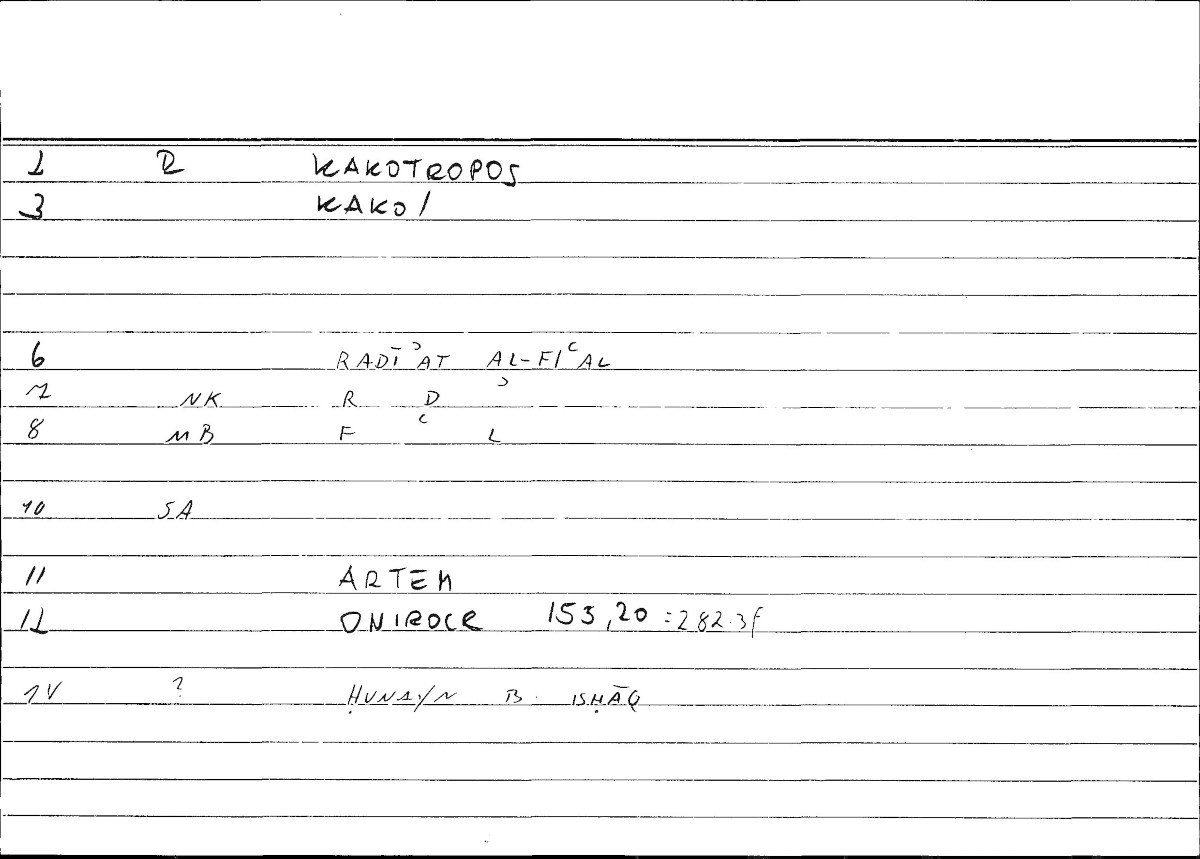 1 R KAKOTROPOS
3 KAKO/
6 RADĪʾAT AL-FIʿAL
7 NK R D ʾ
8 MB F ʿ L
10 SA
11 ARTEM
12 ONIROCR 153,20 =282.3f
1V ? ḤUNAYN B. ISḤĀQ